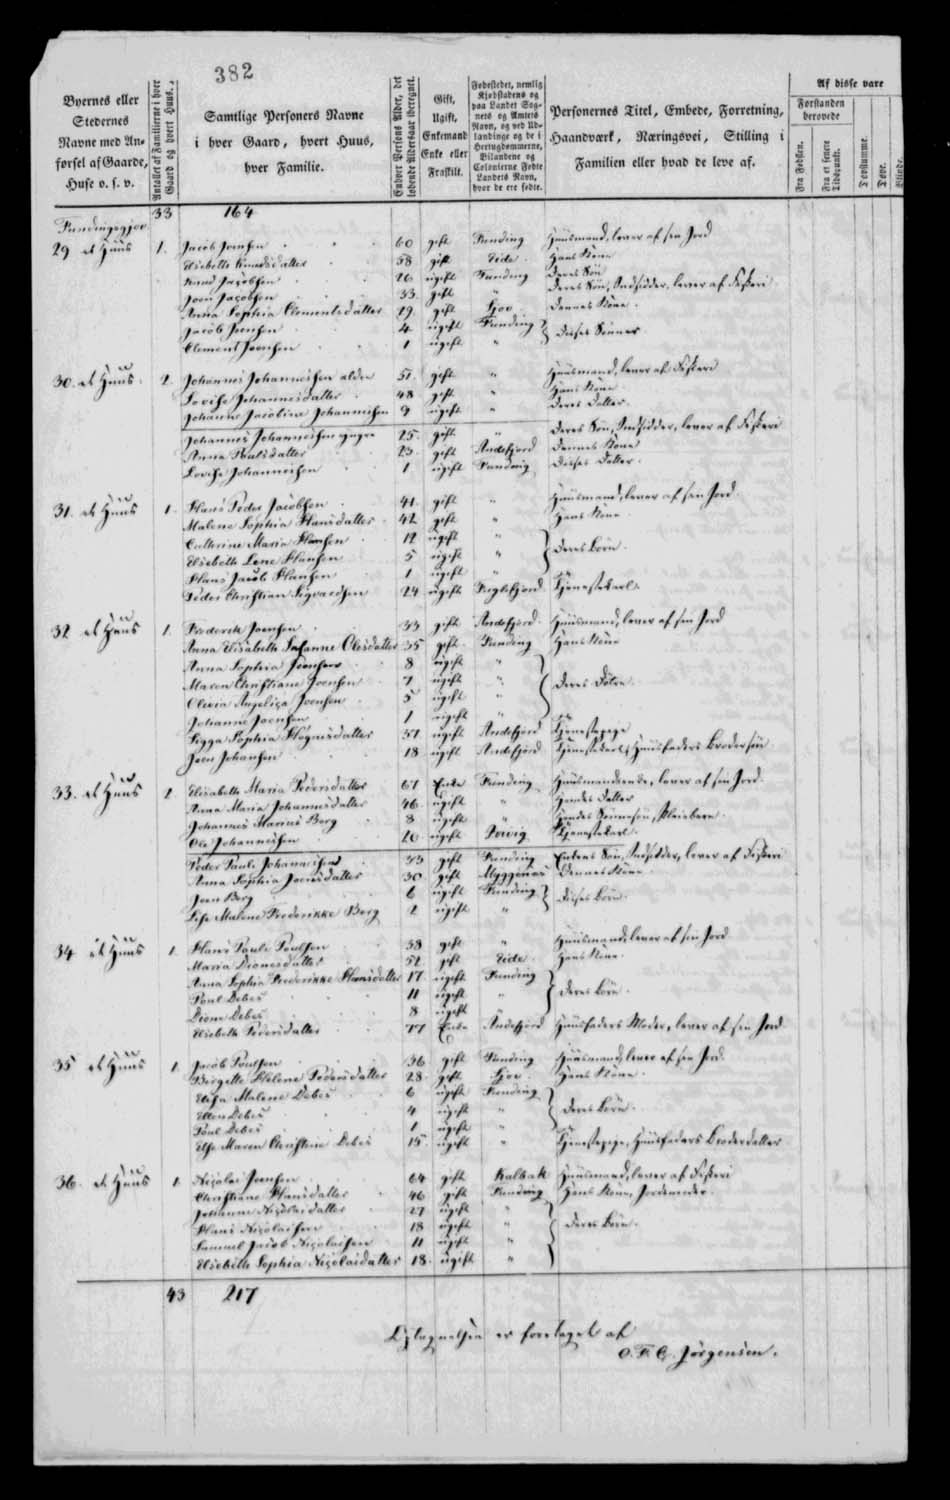 382
Byernes eller Stedernes Navne med Anførsel af Gaarde, Huse o. s. v.
Antallet af Familierne i hver Gaard og hvert Huus.
Samtlige Personers Navne i hver Gaard, hvert Huus, hver Familie.
Enhver Persons Alder, det løbende Aldersaar iberegnet.
Gift, Ugift, Enkemand Enke eller Fraskilt.
Fødestedet, nemlig Kjøbstadens og paa Landet Sognets og Amtets Navn, og ved Udlændinge og de i Hertugdømmerne, Bilandene og Colonierne Fødte Landets Navn, hvor de ere fødte.
Personernes Titel, Embede, Forretning, Haandværk, Næringsvei, Stilling i Familien eller hvad de leve af.
Af disse vare
Forstanden berøvede
Fra Fødslen.
Fra et senere Tidspunkt.
Døvstumme.
Døve.
Blinde.
33 164
29 et Huus 1. Jacob Joensen 60 gift Funding Huusmand, lever af sin Jord
Elsebeth Knudsdatter 58 gift Eide hans Kone
Knud Jacobsen 26 ugift Funding Deres Søn
Joen Jacobsen 33 gift " Deres Søn, Indsidder, lever af Fiskeri
Anna Sophia Clementsdatter 29 gift Gjov Dennes Kone
Jacob Joensen 4 ugift Funding } Disses Sønner
Clement Joensen 1 ugift "
30. et Huus 2. Johannes Johannesen ældre 51 gift " Huusmand, lever af Fiskeri
Lovise Johannesdatter 48 gift " hans Kone
Johanne Jacobine Johannesen 9 ugift " Deres Datter
Johannes Johannesen yngre 25 gift " Deres Søn, Indsidder, lever af Fiskeri
Anna Poulsdatter 25 gift Andefjord Dennes Kone
Lovise Johannesen 1 ugift Funding Disses Datter
31. et Huus 1. Hans Peder Jacobsen 41 gift " Huusmand, lever af sin Jord
Malene Sophia Hansdatter 42 gift " hans Kone
Cathrine Maria Hansen 12 ugift " } Deres Børn
Elsebeth Lene Hansen 5 ugift "
Hans Jacob Hansen 1 ugift "
Peder Christian Sigvardsen 24 ugift Fuglefjord Tjenestekarl
32 et Huus 1. Frederik Joensen 33 gift Andefjord Huusmand, lever af sin Jord
Anna Elisabeth Susanne Olesdatter 35 gift Funding hans Kone
Anna Sophia Joensen 8 ugift " } Deres Døtre
Maren Christiane Joensen 7 ugift "
Olivia Angelica Joensen 5 ugift "
Johanne Joensen 1 ugift "
Sigga Sophia Høgnesdatter 51 ugift Andefjord Tjenestepige
Joen Johansen 18 ugift Andefjord Tjenestekarl, Huusfaders Brodersøn
33. et Huus 2. Elisabeth Maria Pedersdatter 67 Enke Funding Huusmandsenke, lever af sin Jord
Anna Maria Johannesdatter 46 ugift " hendes Datter
Johannes Marius Berg 8 ugift " hendes Sønnesøn, Pleiebarn
Ole Johannesen 26 ugift Porvig Tjenestekarl
Peder Pauli Johannesen 33 gift Funding Enkens Søn, Indsidder, lever af Fiskeri
Anna Sophia Joensdatter 30 gift Myggenæs Dennes Kone
Joen Berg 6 ugift Funding } Disses Børn
Lise Malene Frederikke Berg 2 ugift "
34 et Huus 1. Hans Pauli Poulsen 38 gift " Huusmand, lever af sin Jord
Maria Dionesdatter 52 gift Eide hans Kone
Anna Sophia Frederikke Hansdatter 17 ugift Funding } Deres Børn
Poul Debes 11 ugift "
Dione Debes 8 ugift
Elsebeth Pedersdatter 77 Enke Andefjord Huusfaders Moder, lever af sin Jord
35 et Huus 1. Jacob Poulsen 36 gift Funding Huusmand, lever af sin Jord
Birgette Helene Pedersdatter 28 gift Gjov hans Kone
Elisa Malene Debes 6 ugift Funding } Deres Børn
Ellen Debes 4 ugift "
Poul Debes 1 ugift "
Else Maren Christine Debes 15 ugift " Tjenestepige, Huusfaders Broderdatter
36. et Huus 1. Nicolai Joensen 64 gift Kalbak Huusmand, lever af Fiskeri
Christiane Hansdatter 46 gift Funding hans Kone, Jordemoder
Johanne Nicolaidatter 27 ugift " } Deres Børn
Hans Nicolaisen 18 ugift "
Samuel Jacob Nicolaisen 11 ugift "
Elsebeth Sophia Nicolaisdatter 18 ugift "
43 217
er foretaget af
O. F. C. Jørgensen.